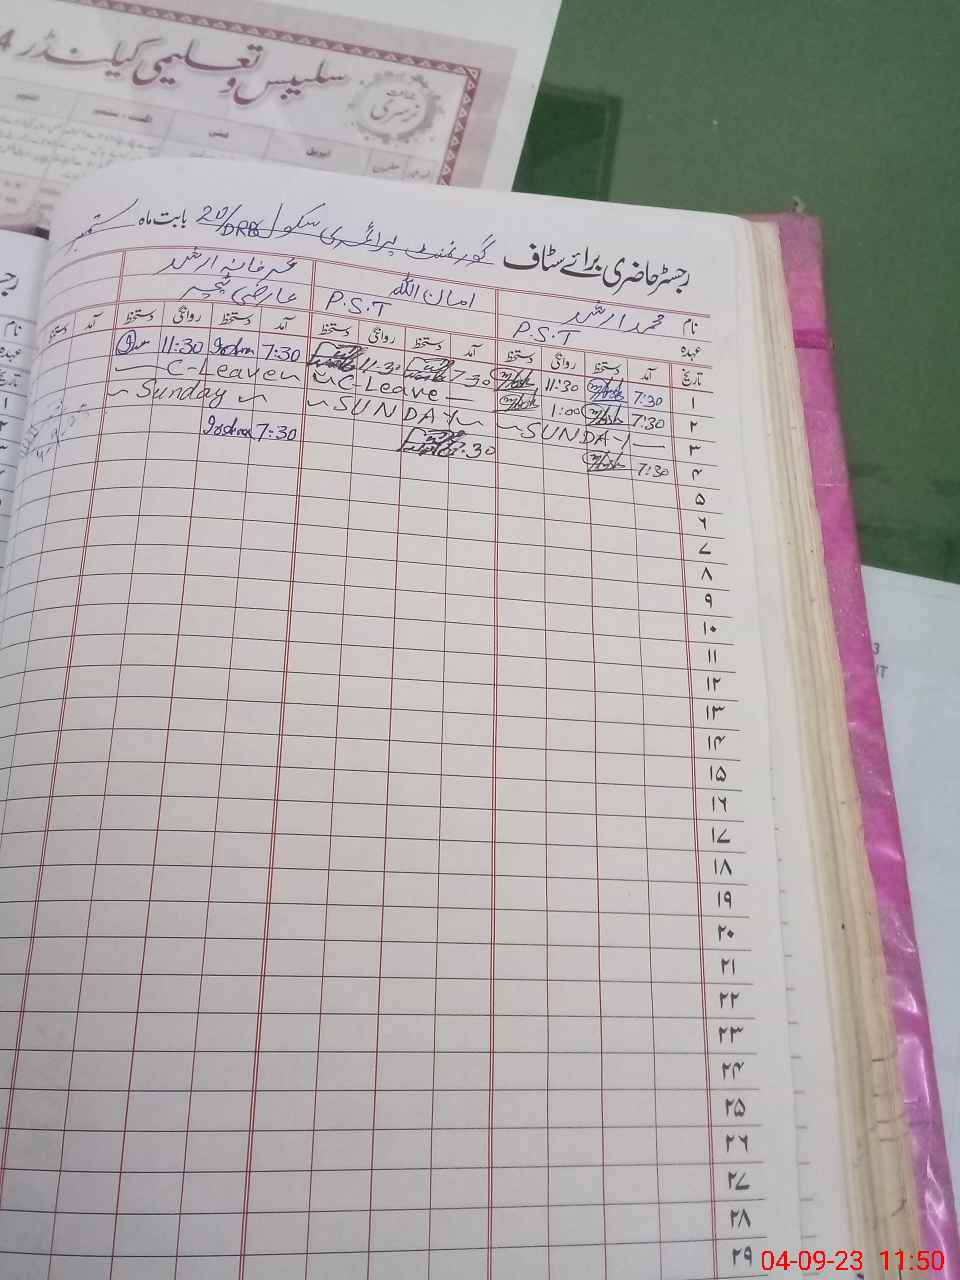 سلیبس و تعلیمی کیلنڈر 4
نرسری
اپریل
مئی
رجسٹر حاضری برائے سٹاف گورنمنٹ پرائمری سکول 20/DRB بابت ماہ ستمبر
نام محمد ارشد امان اللہ عرفانہ ارشد
عہدہ P.S.T P.S.T عارضی ٹیچر
تاریخ آمد دستخط روانگی دستخط آمد دستخط روانگی دستخط آمد دستخط روانگی دستخط آمد دستخط
۱ 7:30 11:30 7:30 11:30 7:30 11:30
۲ 7:30 1:00 C-Leave C-Leave
۳ SUNDAY SUNDAY Sunday
۴ 7:30 7:30 7:30
۵
۶
۷
۸
۹
۱۰
۱۱
۱۲
۱۳
۱۴
۱۵
۱۶
۱۷
۱۸
۱۹
۲۰
۲۱
۲۲
۲۳
۲۴
۲۵
۲۶
۲۷
۲۸
۲۹
04-09-23 11:50